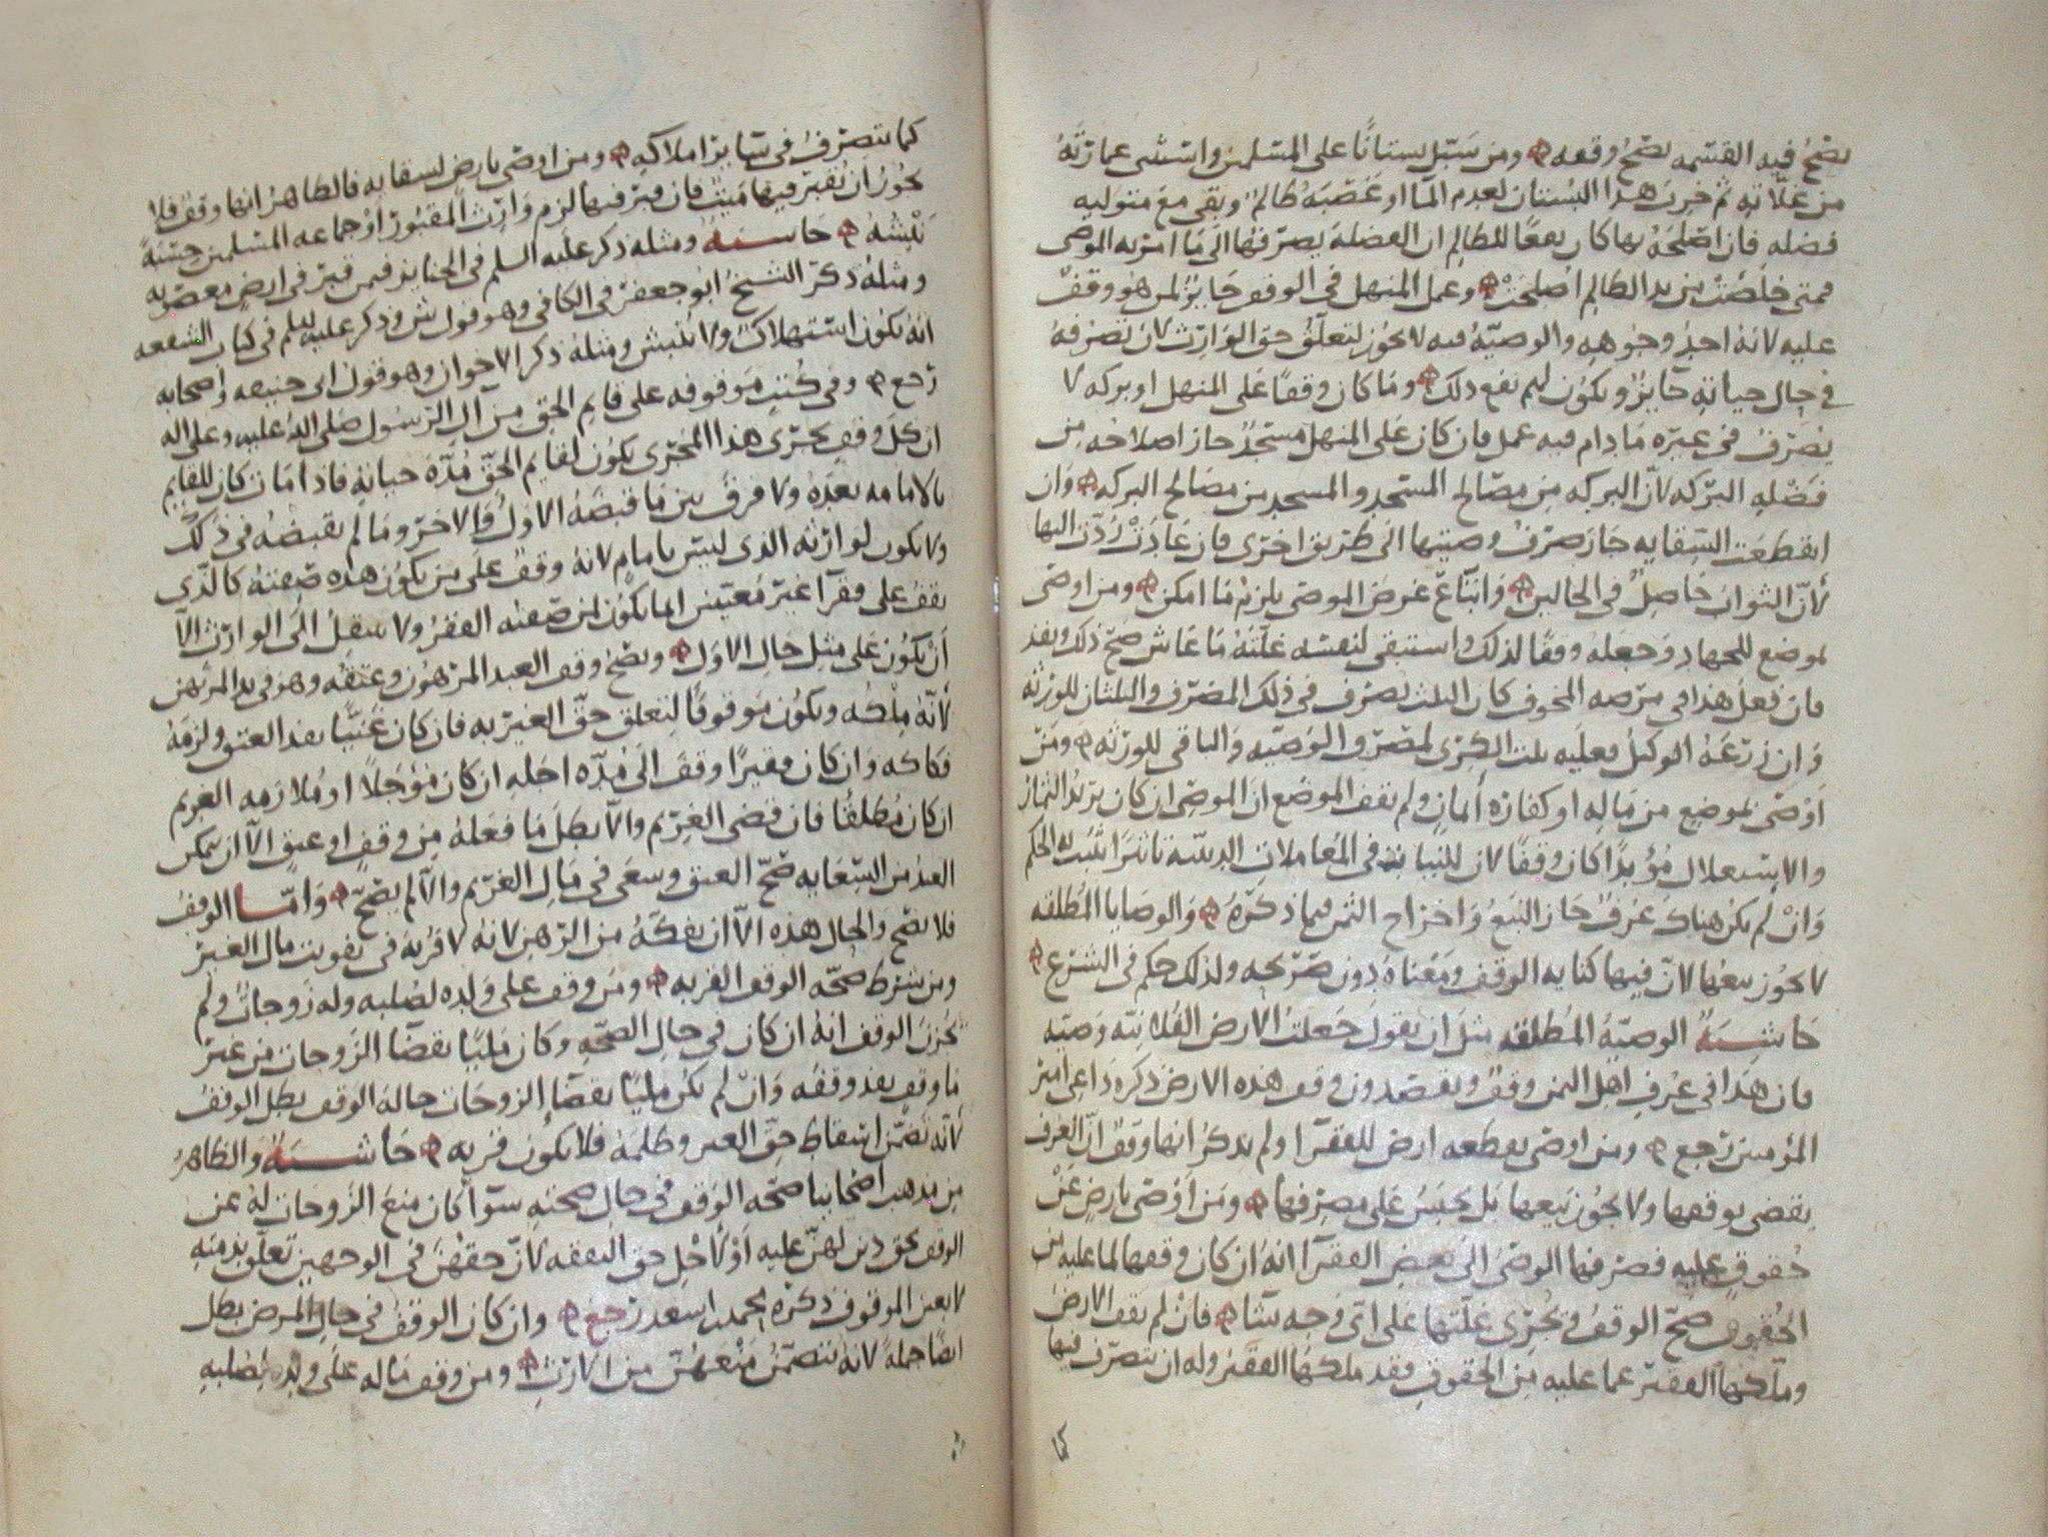 يصح فيه القسمه يصح وقفه ومن سبّل بستانًا على المسلمين واستثنى عمارته
من غلاته ثم خرب هذا البستان لعدم الما او غصبه ظالم وبقي مع متوليه
فضله فان اصلحه بها كان نفعًا للظالم ان الفضلة يصرفها الى ما امر به الموصى
فمتى خلصت من يد الظالم اصلحت وعمل المنهل في الوقف جايز لمن هو وقف
عليه لانه احد وجوهه والوصيّة فيه لا يجوز لتعلّق حق الوارث لان تصرفه
في حال حياته جايز ويكون لهم نفع ذلك وما كان وقفًا على المنهل او بركه لا
يصرف في غيره ما دام فيه عمل فان كان على المنهل مسجد جاز اصلاحه من
فضله البركه لان البركه من مصالح المسجد والمسجد من مصالح البركه وان
انقطعت السقايه جاز صرف وصيتها الى طريق اخرى فان عادت ردّت اليها
لان الثواب حاصل في الحالين واتباع غرض الموصى يلزم ما امكن ومن اوصى
بموضع للجهاد وجعله وقفًا لذلك واستبقى لنفسه غلته ما عاش صح ذلك ونفذ
فان فعل هذا في مرضه المخوف كان الثلث يصرف في ذلك المصرف والثلثان للورثه
وان زرعه الوكيل فعليه ثلث الكرى لمصرف الوصيه والباقي للورثه ومن
اوصى بموضع من ماله او كفارة ايمان ولم يقف الموضع ان الموصى ان كان يريد الثمار
والاستغلال مؤبدًا كان وقفًا لان للنيات في المعاملات الدينيه تاثيرًا يثبت له الحكم
وان لم يكن هناك عرف جاز البيع واخراج الثمن فيما ذكره والوصايا المطلقه
لا يجوز بيعها لان فيها كنايه الوقف ومعناه دون صريحه ولذلك حكم في الشرع
حاشية الوصيّة المطلقه مثل ان يقول جعلت الارض الفلانيّه وصيه
فان هذا في عرف اهل اليمن وقف ويقصدون وقف هذه الارض ذكره داعى امير
المؤمنين رجع ومن اوصى بقطعه ارض للفقرا ولم يذكر انها وقف ان العرف
يقضى بوقفها ولا يجوز بيعها بل يحبس على مصرفها ومن اوصى بارض عن
حقوق عليه فصرفها الوصى الى بعض الفقرا انه ان كان وقفها لما عليه من
الحقوق صح الوقف وتجرى غلتها على اى وجه شا فان لم يقف الارض
وملّكها الفقير عما عليه من الحقوق فقد ملكها الفقير وله ان يتصرف فيها
كما
كما يتصرف في ساير املاكه ومن اوصى بارض لسقايه فالظاهر انها وقف فلا
يجوز ان يقبر فيها ميت فان قبر فيها لزم وارث المقبور او جماعه المسلمين حسبة
نبشه حاشيه ومثله ذكر عليه السلم في الجنايز فيمن قبر في ارض مغصوبه
ومثله ذكر الشيخ ابو جعفر في الكافي وهو قول ش وذكر عليه السلم في كتاب الشفعه
انه يكون استهلاكًا ولا ينبش ومثله ذكر الاخوان وهو قول ابي حنيفه واصحابه
رجع وفي كتب موقوفه على قايم الحق من آل الرسول صلى الله عليه وعلى اله
ان كل وقف يجرى هذا المجرى يكون لقايم الحق مدّة حياته فاذا مات كان للقايم
بالامامه بعده ولا فرق بين ما قبضه الاول والاخر وما لم يقبضه في ذلك
ولا يكون لوارثه الذى ليس بامام لانه وقف على من يكون هذه صفته كالذى
يقف على فقرآ غير معينين انما يكون لمن صفته الفقر ولا ينتقل الى الوارث الا
ان يكون على مثل حال الاول ويصح وقف العبد المرهون وعتقه وهو في يد المرتهن
لانه ملكه ويكون موقوفًا لتعلق حق الغير به فان كان غنيًا نفذ العتق ولزمه
فكاكه وان كان فقيرًا وقف الى مدّه اجله ان كان مؤجلًا او ملازمه الغريم
ان كان مطلقًا فان قضى الغريم والا بطل ما فعله من وقف او عتق الا ان يمكن
العبد من السعايه صح العتق وسعى في مال الغريم والا لم يصح وامّا الوقف
فلا يصح والحال هذه الا ان يفكه من الرهن لانه لا قربة في تفويت مال الغير
ومن شرط صحّه الوقف القربه ومن وقف على ولده لصلبه وله زوجات ولم
يجزن الوقف انه ان كان في حال الصحّه وكان مليًّا بقضا الزوجات من غير
ما وقف نفذ وقفه وان لم يكن مليًّا بقضا الزوجات حالة الوقف بطل الوقف
لانه تضمّن اسقاط حق الغير وظلمه فلا يكون قربه حاشية والظاهر
من مذهب اصحابنا صحّه الوقف في حال صحته سوآ كان منع الزوجات له عن
الوقف بحق دين لهنّ عليه او لاجل حق النفقه لان حقهن في الوجهين تعلق بذمته
لا بعين الموقوف ذكره محمد بن اسعد رجع وان كان الوقف في حال المرض بطل
ايضًا جملة لانه يتضمّن منعهنّ من الارث ومن وقف ماله على ولده لصلبه